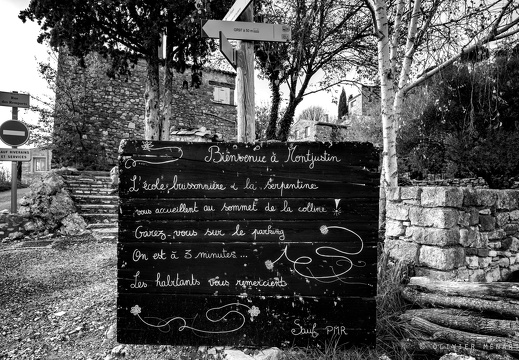 Bienvenue à Montjustin
L'école buissonnière & la serpentine
vous accueillent au sommet de la colline !
Garez-vous sur le parking
On est à 3 minutes...
Les habitants vous remercient
Sauf PMR
© OLIVIER MÉNAR